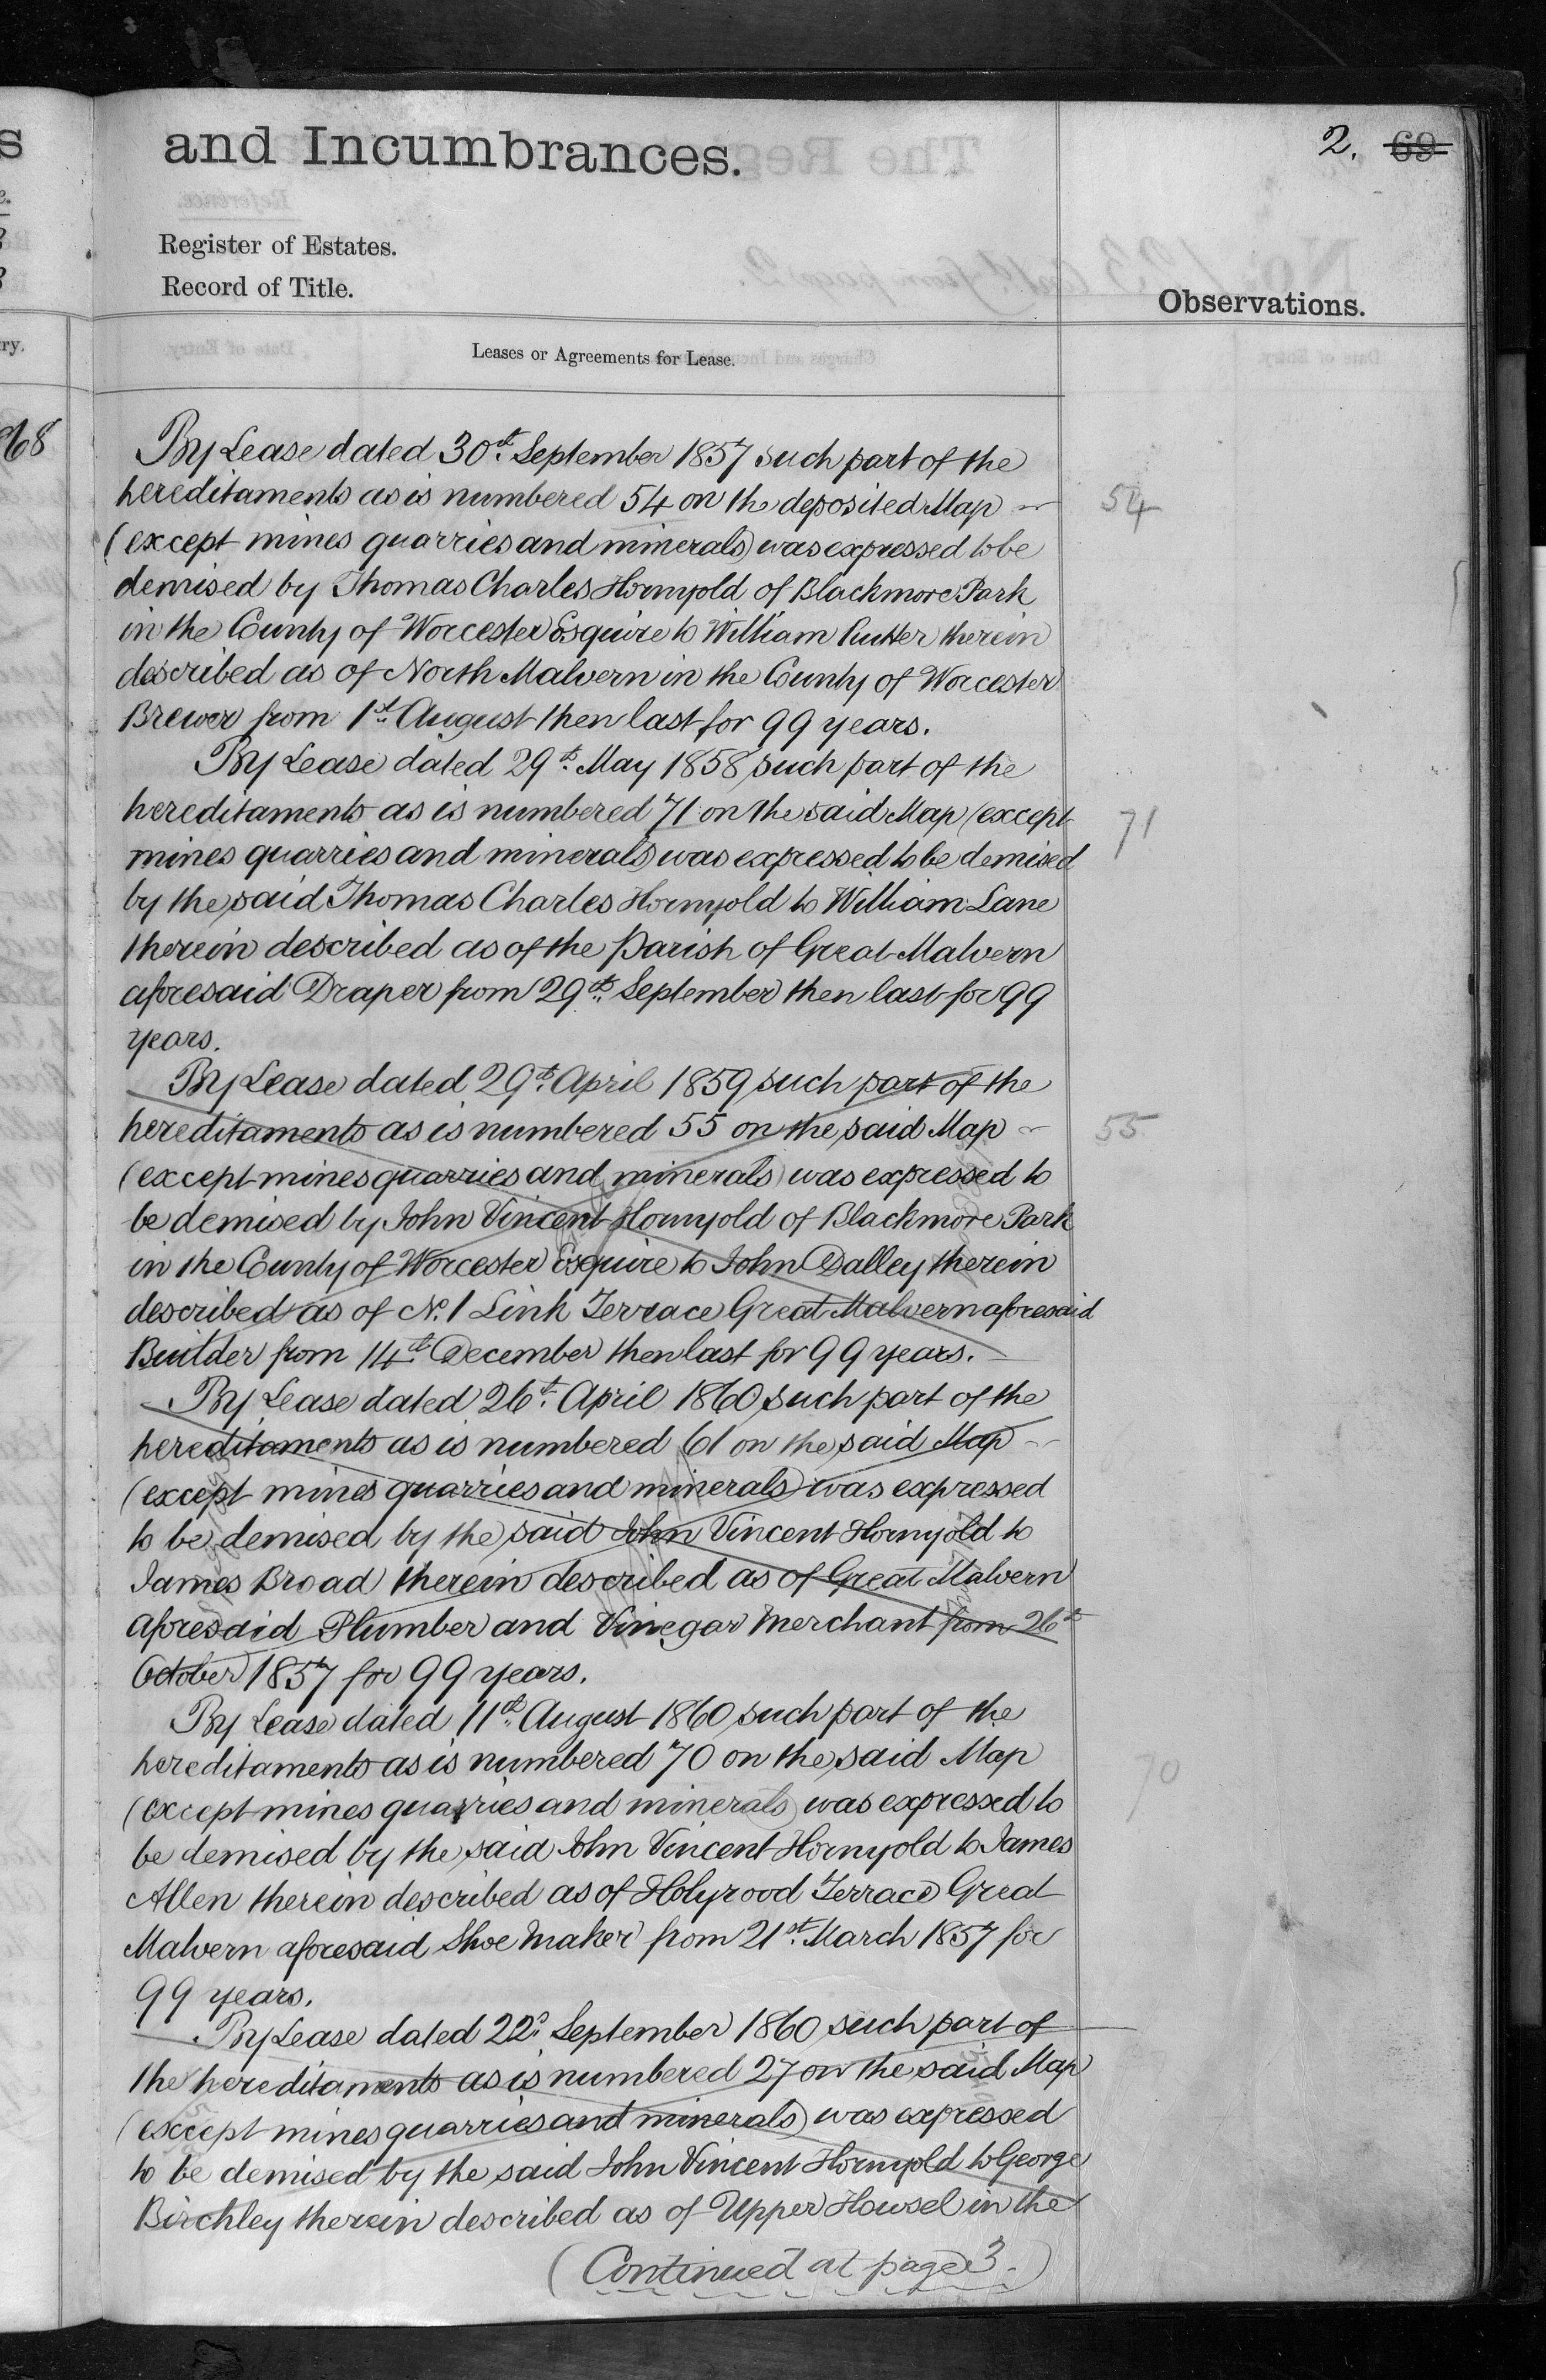 and Incumbrances.
2. 69
Register of Estates.
Record of Title.
Observations.
Leases or Agreements for Lease.
By Lease dated 30th September 1857 such part of the
hereditaments as is numbered 54 on the deposited Map
54
(except mines quarries and minerals) was expressed to be
demised by Thomas Charles Hornyold of Blackmore Park
in the County of Worcester Esquire to William therein
described as of North Malvern in the County of Worcester
Brewer from 1st August then last for 99 years.
By Lease dated 29th May 1858 such part of the
hereditaments as is numbered 71 on the said Map (except
71
mines quarries and minerals) was expressed to be demised
by the said Thomas Charles Hornyold to William Lane
therein described as of the Parish of Great Malvern
aforesaid Draper from 29th September then last for 99
years.
By Lease dated 29th April 1859 such part of the
hereditaments as is numbered 55 on the said Map
55
(except mines quarries and minerals) was expressed to
be demised by John Vincent Hornyold of Blackmore Park
in the County of Worcester Esquire to John Dalley therein
described as of No. 1 Link Terrace Great Malvern aforesaid
Builder from 14th December then last for 99 years.
By Lease dated 26th April 1860 such part of the
hereditaments as is numbered 61 on the said Map
(except mines quarries and minerals) was expressed
to be demised by the said John Vincent Hornyold to
James Broad therein described as of Great Malvern
aforesaid Plumber and Vinegar Merchant from 26th
October 1857 for 99 years.
By Lease dated 11th August 1860 such part of the
hereditaments as is numbered 70 on the said Map
70
(except mines quarries and minerals) was expressed to
be demised by the said John Vincent Hornyold to James
Allen therein described as of Holyrood Terrace Great
Malvern aforesaid Shoe Maker from 21st March 1857 for
99 years.
By Lease dated 22d September 1860 such part of
the hereditaments as is numbered 27 on the said Map
(except mines quarries and minerals) was expressed
to be demised by the said John Vincent Hornyold to George
Birchley therein described as of Upper Howsel in the
(Continued at page 3.)